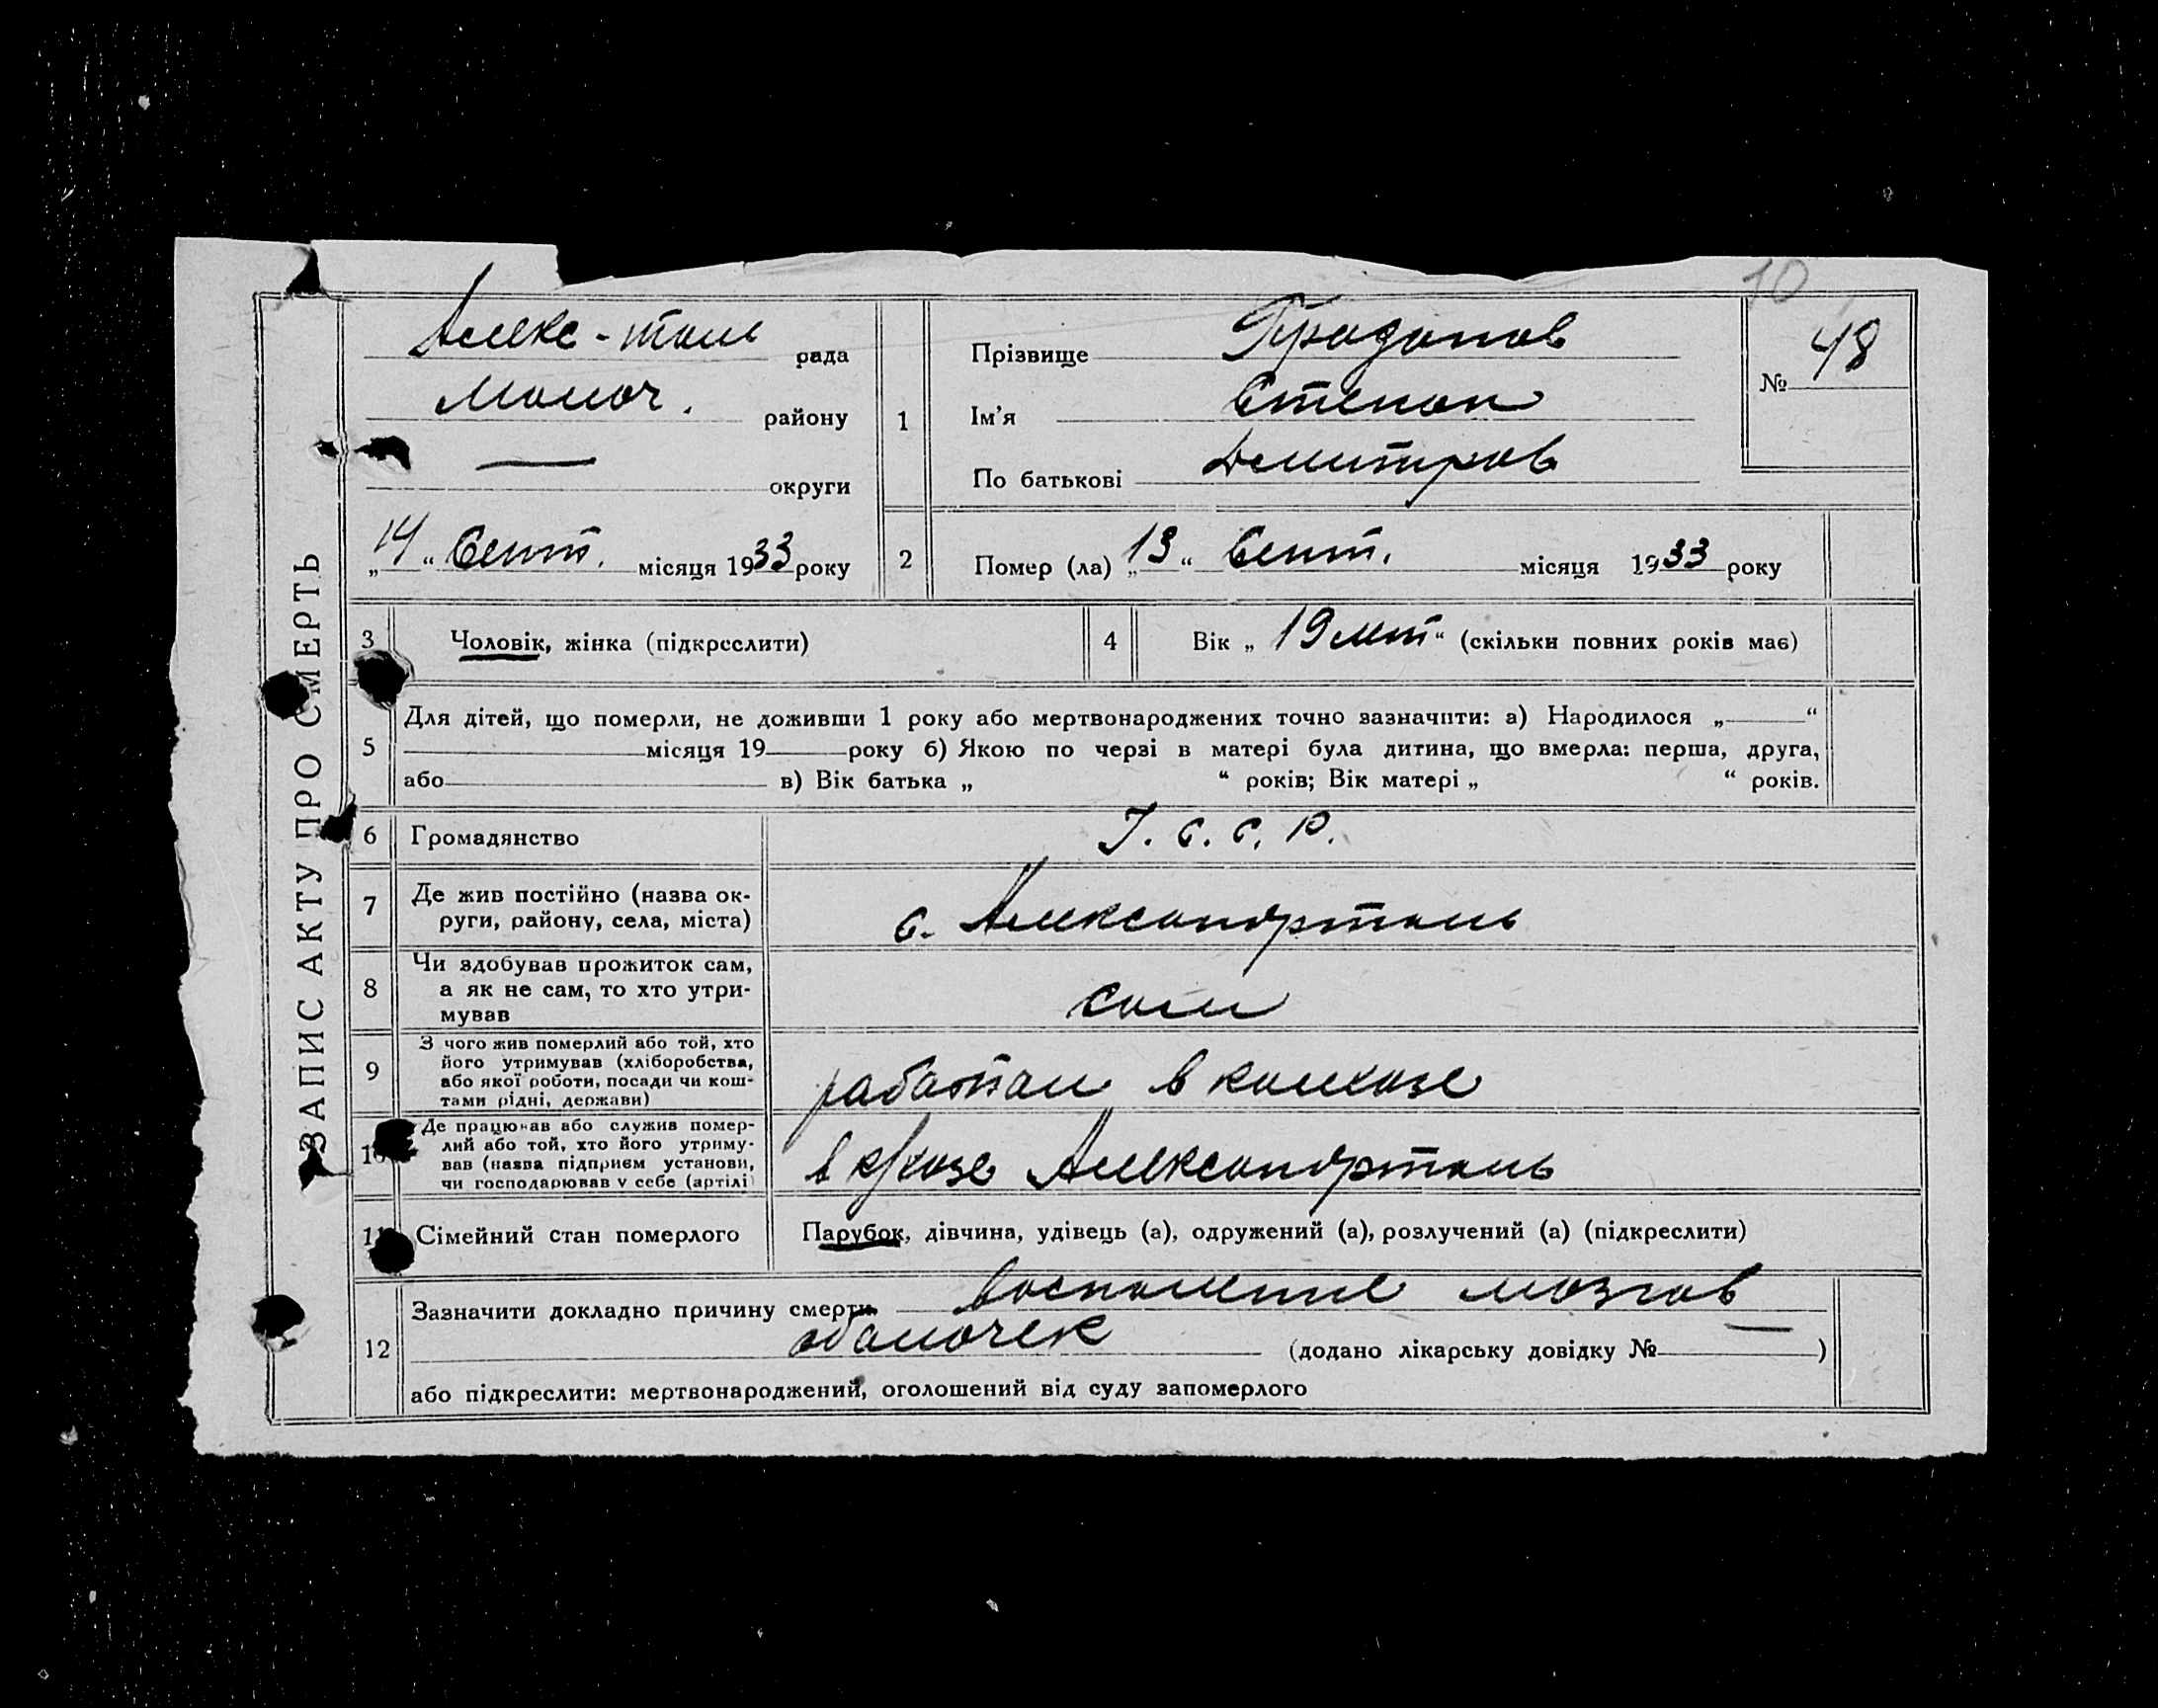 10
ЗАПИС АКТУ ПРО СМЕРТЬ
Алекс-таль рада
Молоч. району
— округи
„14“ Сент. місяця 1933 року
1
Прізвище Продонов
Ім'я Степан
По батькові Дмитров
№ 48
2 Помер (ла) „13“ Сент. місяця 1933 року
3 Чоловік, жінка (підкреслити)
4 Вік „19 лет“ (скільки повних років має)
5 Для дітей, що померли, не доживши 1 року або мертвонароджених точно зазначити: а) Народилося „ “
місяця 19 року б) Якою по черзі в матері була дитина, що вмерла: перша, друга,
або в) Вік батька „ “ років; Вік матері „ “ років.
6 Громадянство У. С. С. Р.
7 Де жив постійно (назва ок-
руги, району, села, міста) с. Александрталь
8 Чи здобував прожиток сам,
а як не сам, то хто утри-
мував сам
9 З чого жив померлий або той, хто
його утримував (хліборобства,
або якої роботи, посади чи кош-
тами рідні, держави) работал в колхозе
10 Де працював або служив помер-
лий або той, хто його утриму-
вав (назва підприєм установи,
чи господарював у себе (артілі) в к/хозе Александрталь
11 Сімейний стан померлого Парубок, дівчина, удівець (а), одружений (а), розлучений (а) (підкреслити)
12 Зазначити докладно причину смерти воспаление мозгов
оболочек (додано лікарську довідку № — )
або підкреслити: мертвонароджений, оголошений від суду запомерлого